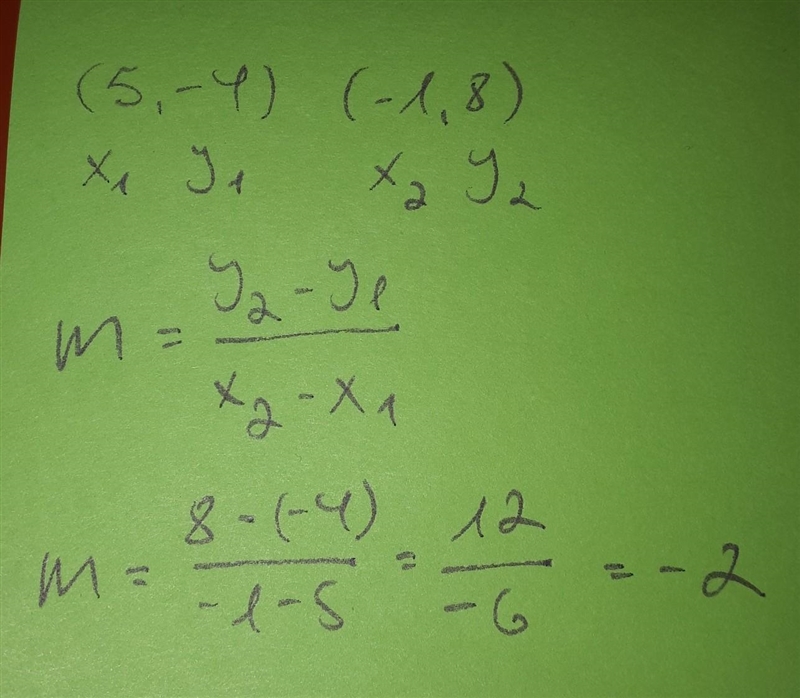 (5,-4) (-1,8)
x₁ y₁ x₂ y₂
m = y₂ - y₁ / x₂ - x₁
m = 8 - (-4) / -1 - 5 = 12 / -6 = -2